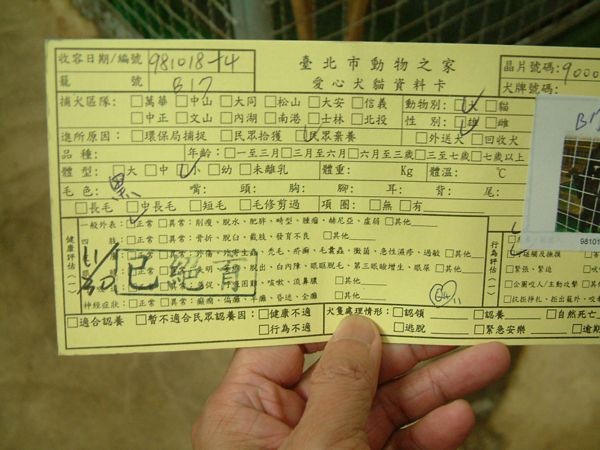 收容日期/編號 981018-14 臺北市動物之家 晶片號碼:9000
籠 號 B17 愛心犬貓資料卡 犬牌號碼:
捕犬區隊: □萬華 □中山 □大同 □松山 □大安 □信義 動物別: □犬 □貓
□中正 □文山 □內湖 □南港 □士林 □北投 性 別: □雄 □雌
進所原因: □環保局捕捉 □民眾拾獲 □民眾棄養 □外送犬 □回收犬
品 種: 年齡: □一至三月 □三月至六月 □六月至三歲 □三至七歲 □七歲以上
體 型: □大 □中 □小 □幼 □未離乳 體重: Kg 體溫: ℃
毛 色: 黑 嘴: 頭: 胸: 腳: 耳: 背: 尾:
□長毛 □中長毛 □短毛 □毛修剪過 項 圈: □無 □有
健康評估(一) 行為評估(一)
一般外表: □正常 □異常: 削瘦、脫水、肥胖、畸型、腫瘤、赫尼亞、虛弱 □其他
四 肢: □正常 □異常: 骨折、脫臼、截肢、發育不良 □其他
禿毛、疥癬、毛囊蟲、黴菌、急性濕疹、過敏 □其他
脫出、白內障、眼瞼脫毛、第三眼瞼增生、眼屎 □其他
困難、咳嗽、流鼻膿 □其他
神經症狀: □正常 □異常: 癲癇、 昏迷、全癱 □其他
11/30 已絕育
□緊張、緊迫
□企圖咬人/主動攻擊
□適合認養 □暫不適合民眾認養因: □健康不適 犬隻處理情形: □認領 □認養 □自然死亡
□行為不適 □逃脫 □緊急安樂 □逾期
B17
98101